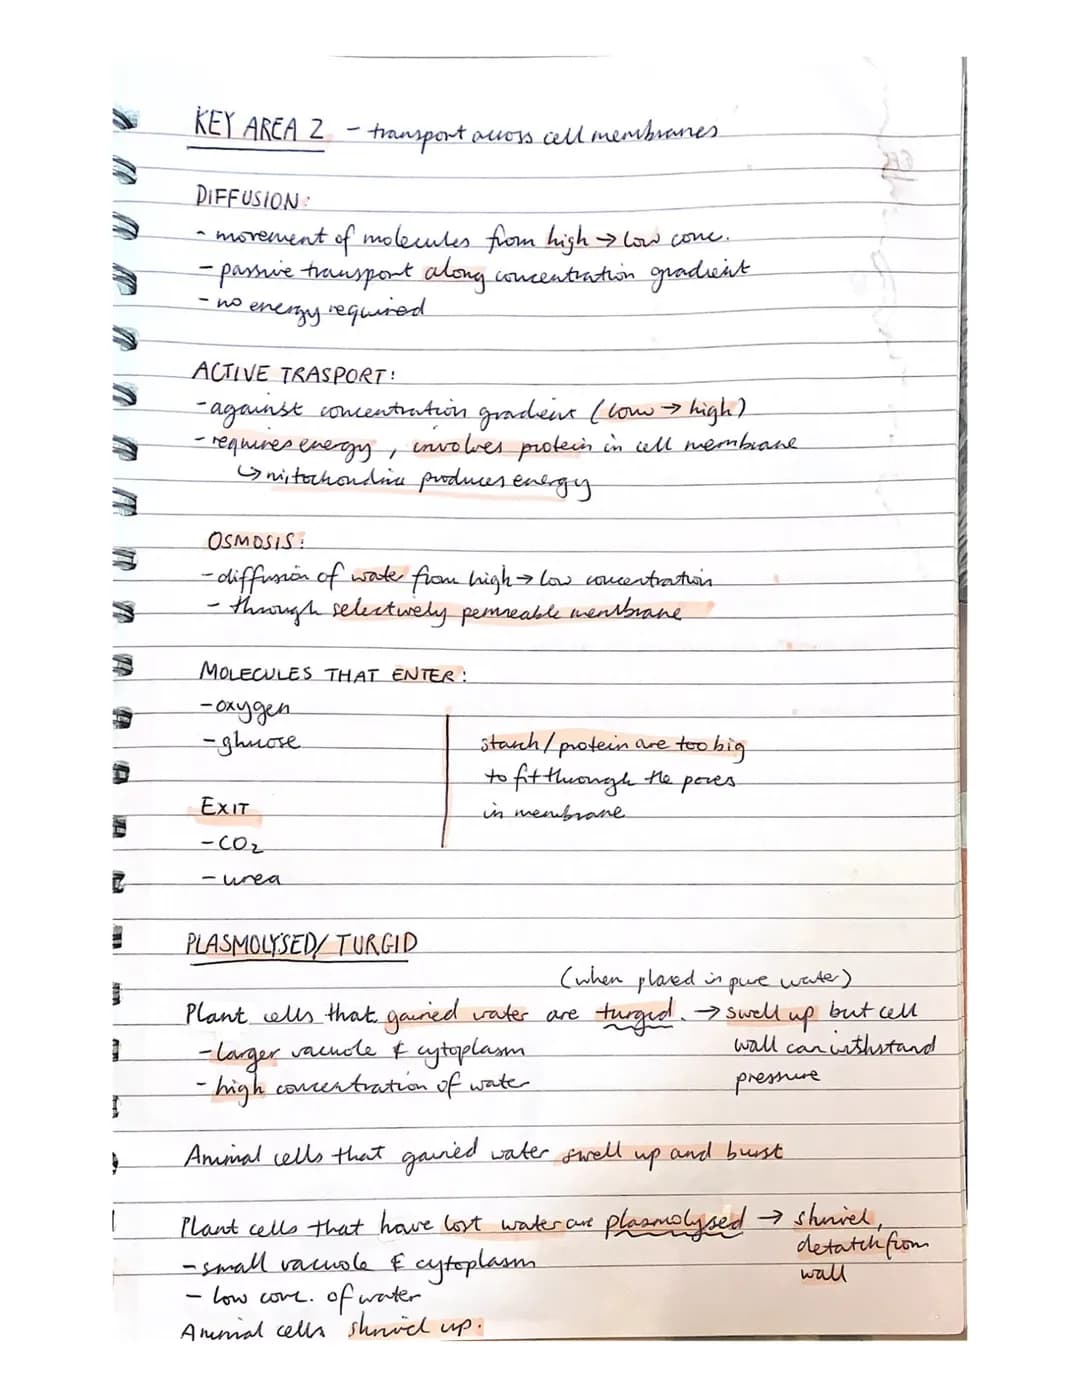 KEY AREA 2 - transport across cell membranes
DIFFUSION:
- movement of molecules from high → low conc.
- passive transport along concentration gradient
- no energy required
ACTIVE TRASPORT:
- against concentration gradient (low → high)
- requires energy, involves protein in cell membrane
↳ mitochondria produces energy
OSMOSIS:
- diffusion of water from high → low concentration
- through selectively permeable membrane
MOLECULES THAT ENTER:
- oxygen
- glucose
starch/protein are too big
to fit through the pores
in membrane
EXIT
- CO2
- urea
PLASMOLYSED/TURGID
(when placed in pure water)
Plant cells that gained water are turgid. → swell up but cell
wall can withstand
pressure
- larger vacuole & cytoplasm
- high concentration of water
Animal cells that gained water swell up and burst
Plant cells that have lost water are plasmolysed → shrivel,
detatch from
wall
- small vacuole & cytoplasm
- low conc. of water
Animal cells shrivel up.